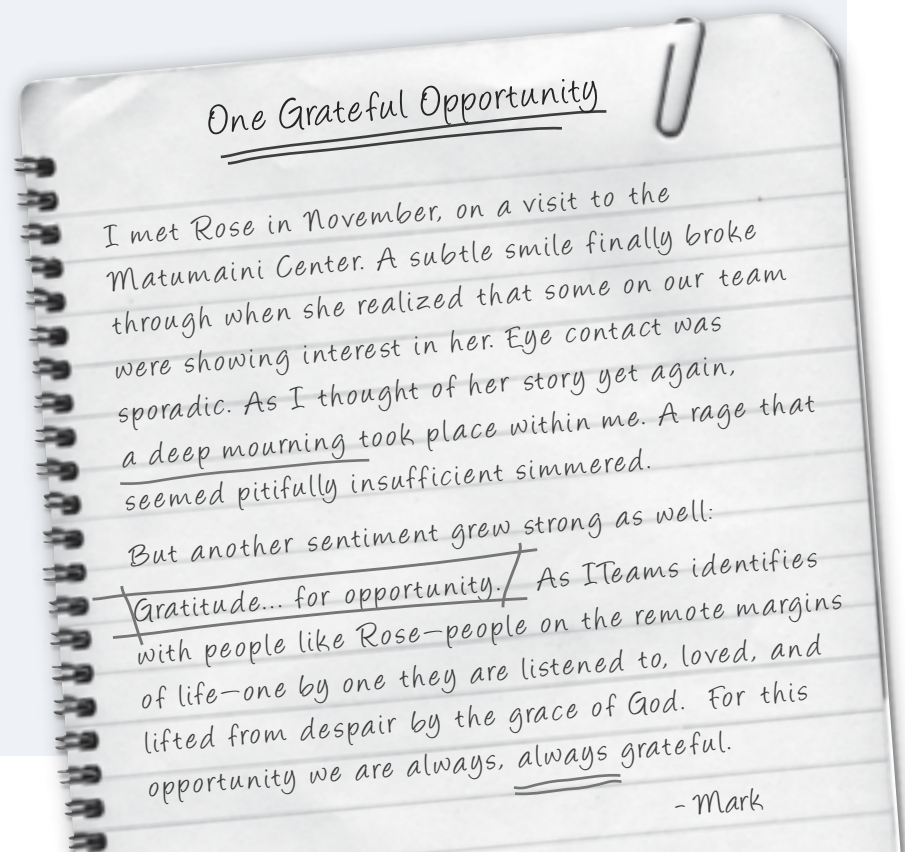 One Grateful Opportunity
I met Rose in November, on a visit to the
Matumaini Center. A subtle smile finally broke
through when she realized that some on our team
were showing interest in her. Eye contact was
sporadic. As I thought of her story yet again,
a deep mourning took place within me. A rage that
seemed pitifully insufficient simmered.
But another sentiment grew strong as well:
Gratitude... for opportunity. As ITeams identifies
with people like Rose—people on the remote margins
of life—one by one they are listened to, loved, and
lifted from despair by the grace of God. For this
opportunity we are always, always grateful.
- Mark